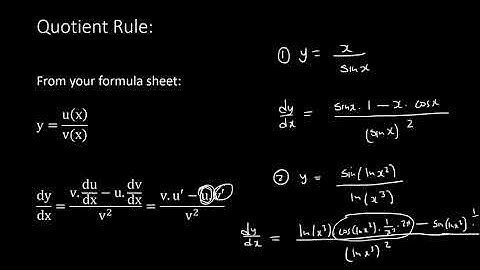 Quotient Rule:
From your formula sheet:
y = u(x)/v(x)
dy/dx = (v.du/dx − u.dv/dx)/v² = (v.u′ − u.v′)/v²
① y = x/sinx
dy/dx = (sinx . 1 − x . cosx)/(sinx)²
② y = sin(lnx²)/ln(x³)
dy/dx = (ln(x³)(cos(lnx²) . 1/x² . 2x) − sin(lnx²) . 1/)/(lnx³)²